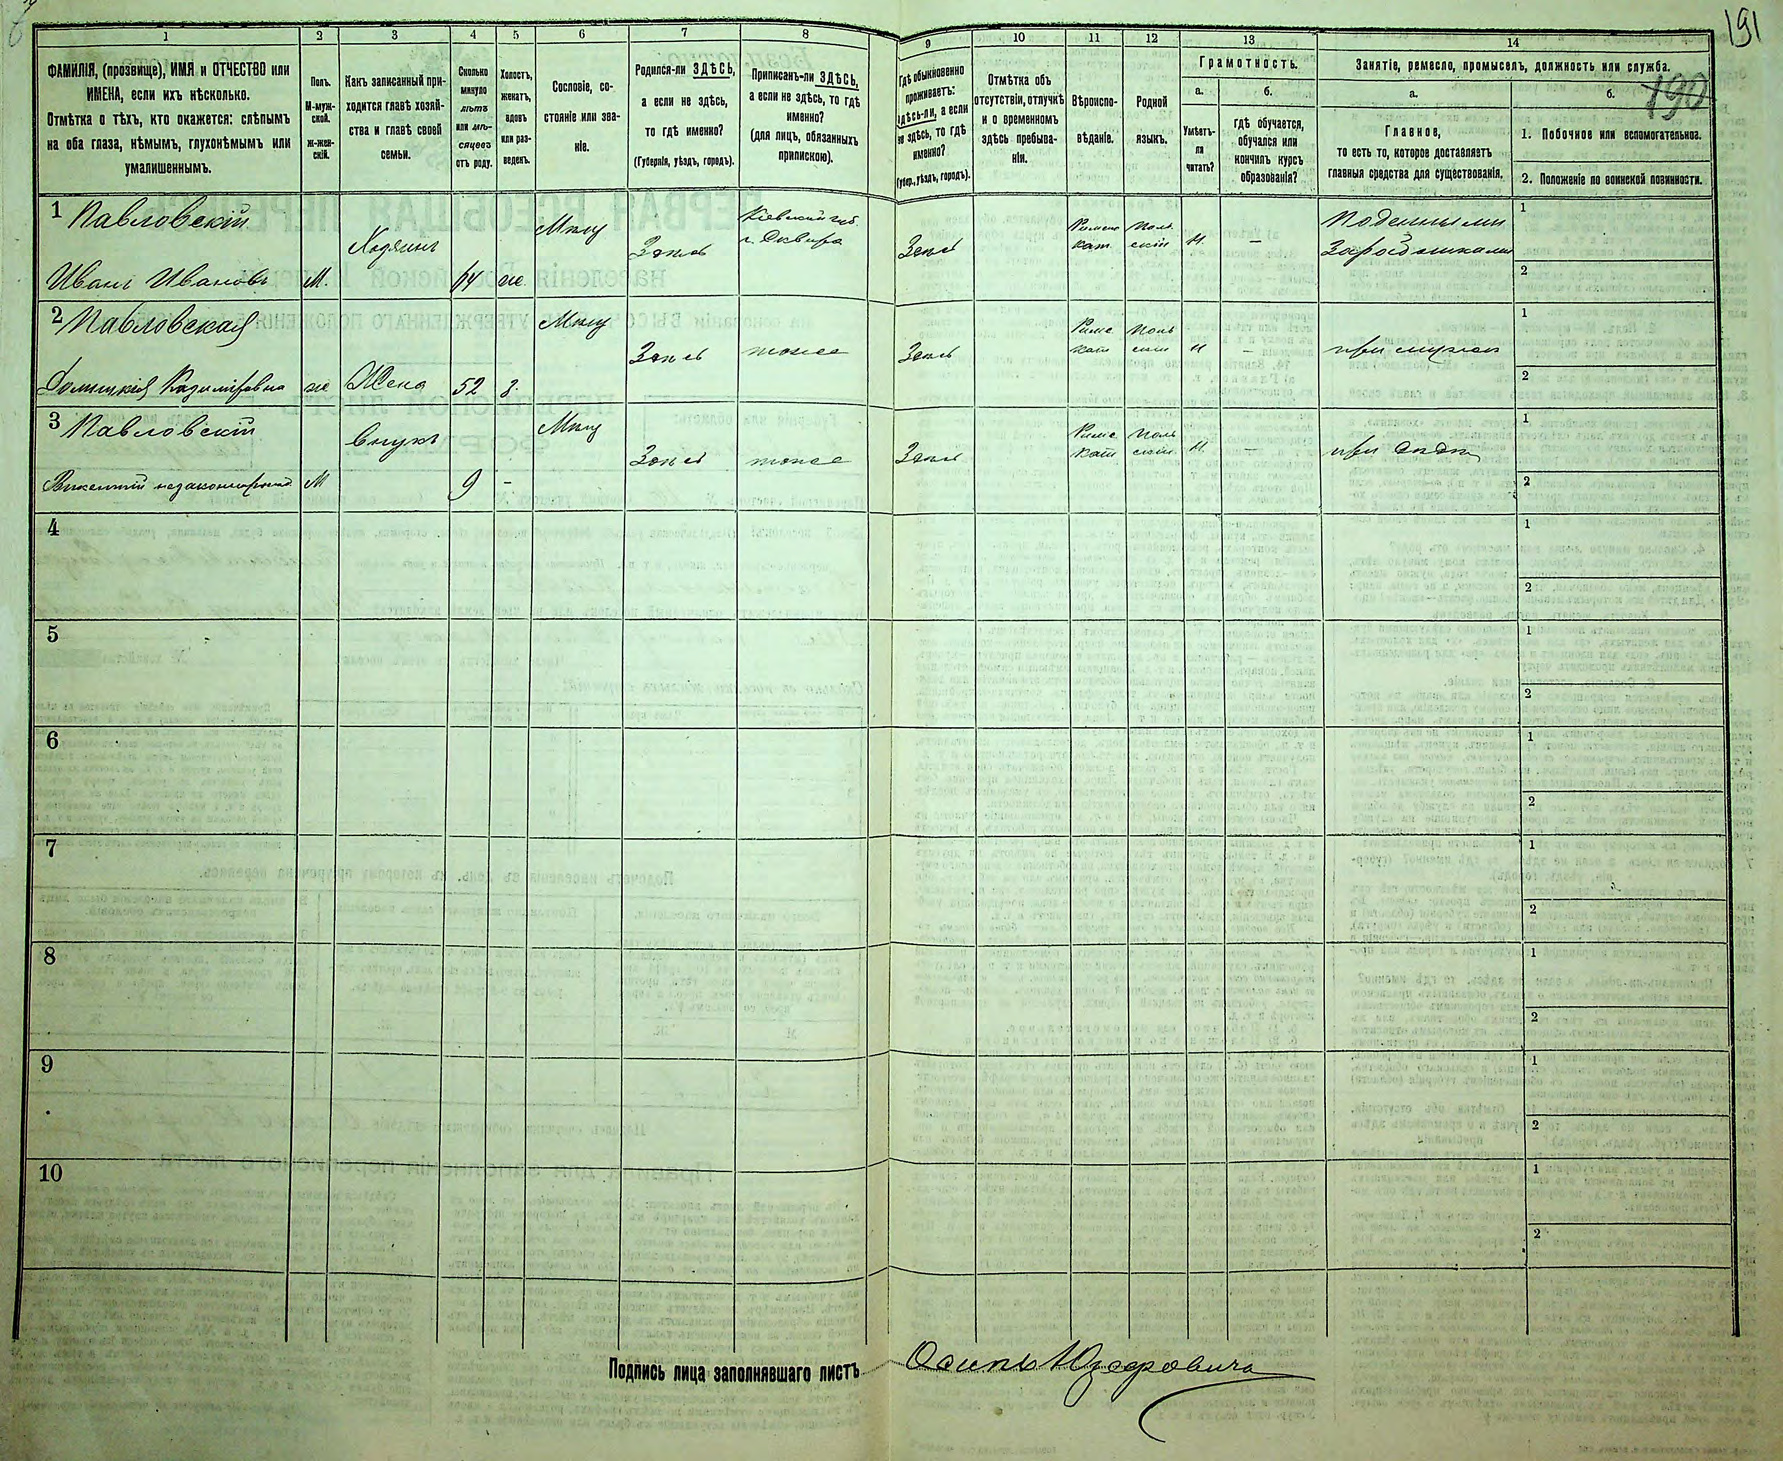 191
190
1 2 3 4 5 6 7 8 9 10 11 12 13 14
ФАМИЛІЯ, (прозвище), ИМЯ и ОТЧЕСТВО или
ИМЕНА, если ихъ нѣсколько.
Отмѣтка о тѣхъ, кто окажется: слѣпымъ
на оба глаза, нѣмымъ, глухонѣмымъ или
умалишеннымъ.
Полъ.
М-муж-
ской.
Ж-жен-
скій.
Какъ записанный при-
ходится главѣ хозяй-
ства и главѣ своей
семьи.
Сколько
минуло
лѣтъ
или мѣ-
сяцевъ
отъ роду.
Холостъ,
женатъ,
вдовъ
или раз-
веденъ.
Сословіе, со-
стояніе или зва-
ніе.
Родился-ли ЗДѢСЬ,
а если не здѣсь,
то гдѣ именно?
(Губернія, уѣздъ, городъ).
Приписанъ-ли ЗДѢСЬ,
а если не здѣсь, то гдѣ
именно?
(для лицъ, обязанныхъ
припискою).
Гдѣ обыкновенно
проживаетъ:
здѣсь-ли, а если
не здѣсь, то гдѣ
именно?
(губер., уѣздъ, городъ).
Отмѣтка объ
отсутствіи, отлучкѣ
и о временномъ
здѣсь пребыва-
ніи.
Вѣроиспо-
вѣданіе.
Родной
языкъ.
Грамотность.
а.
Умѣетъ-
ли
читать?
б.
гдѣ обучается,
обучался или
кончилъ курсъ
образованія?
Занятіе, ремесло, промыселъ, должность или служба.
а.
Главное,
то есть то, которое доставляетъ
главныя средства для существованія.
б.
1. Побочное или вспомогательное.
2. Положеніе по воинской повинности.
1 Павловскій
Иванъ Ивановъ
М.
Хозяинъ
64
ж
Мѣщ
Здѣсь
Кіевской губ.
г. Сквира
Здѣсь
Римско
кат.
Поль
скій
н.
—
Поденными
Заработками
1
2
2 Павловская
Казиміровна
ж
Жена
52
з.
Мѣщ
Здѣсь
тоже
Здѣсь
Римс
кат
Поль
скій
н
—
при мужѣ
1
2
3 Павловскій
Викентій незаконнорожд.
М
внукъ
9
-
Мѣщ
Здѣсь
тоже
Здѣсь
Римс
кат
Поль
скій
н.
—
при дѣдѣ
1
2
4
1
2
5
1
2
6
1
2
7
1
2
8
1
2
9
1
2
10
1
2
Подпись лица заполнявшаго листъ
Осипъ Юзефовичъ